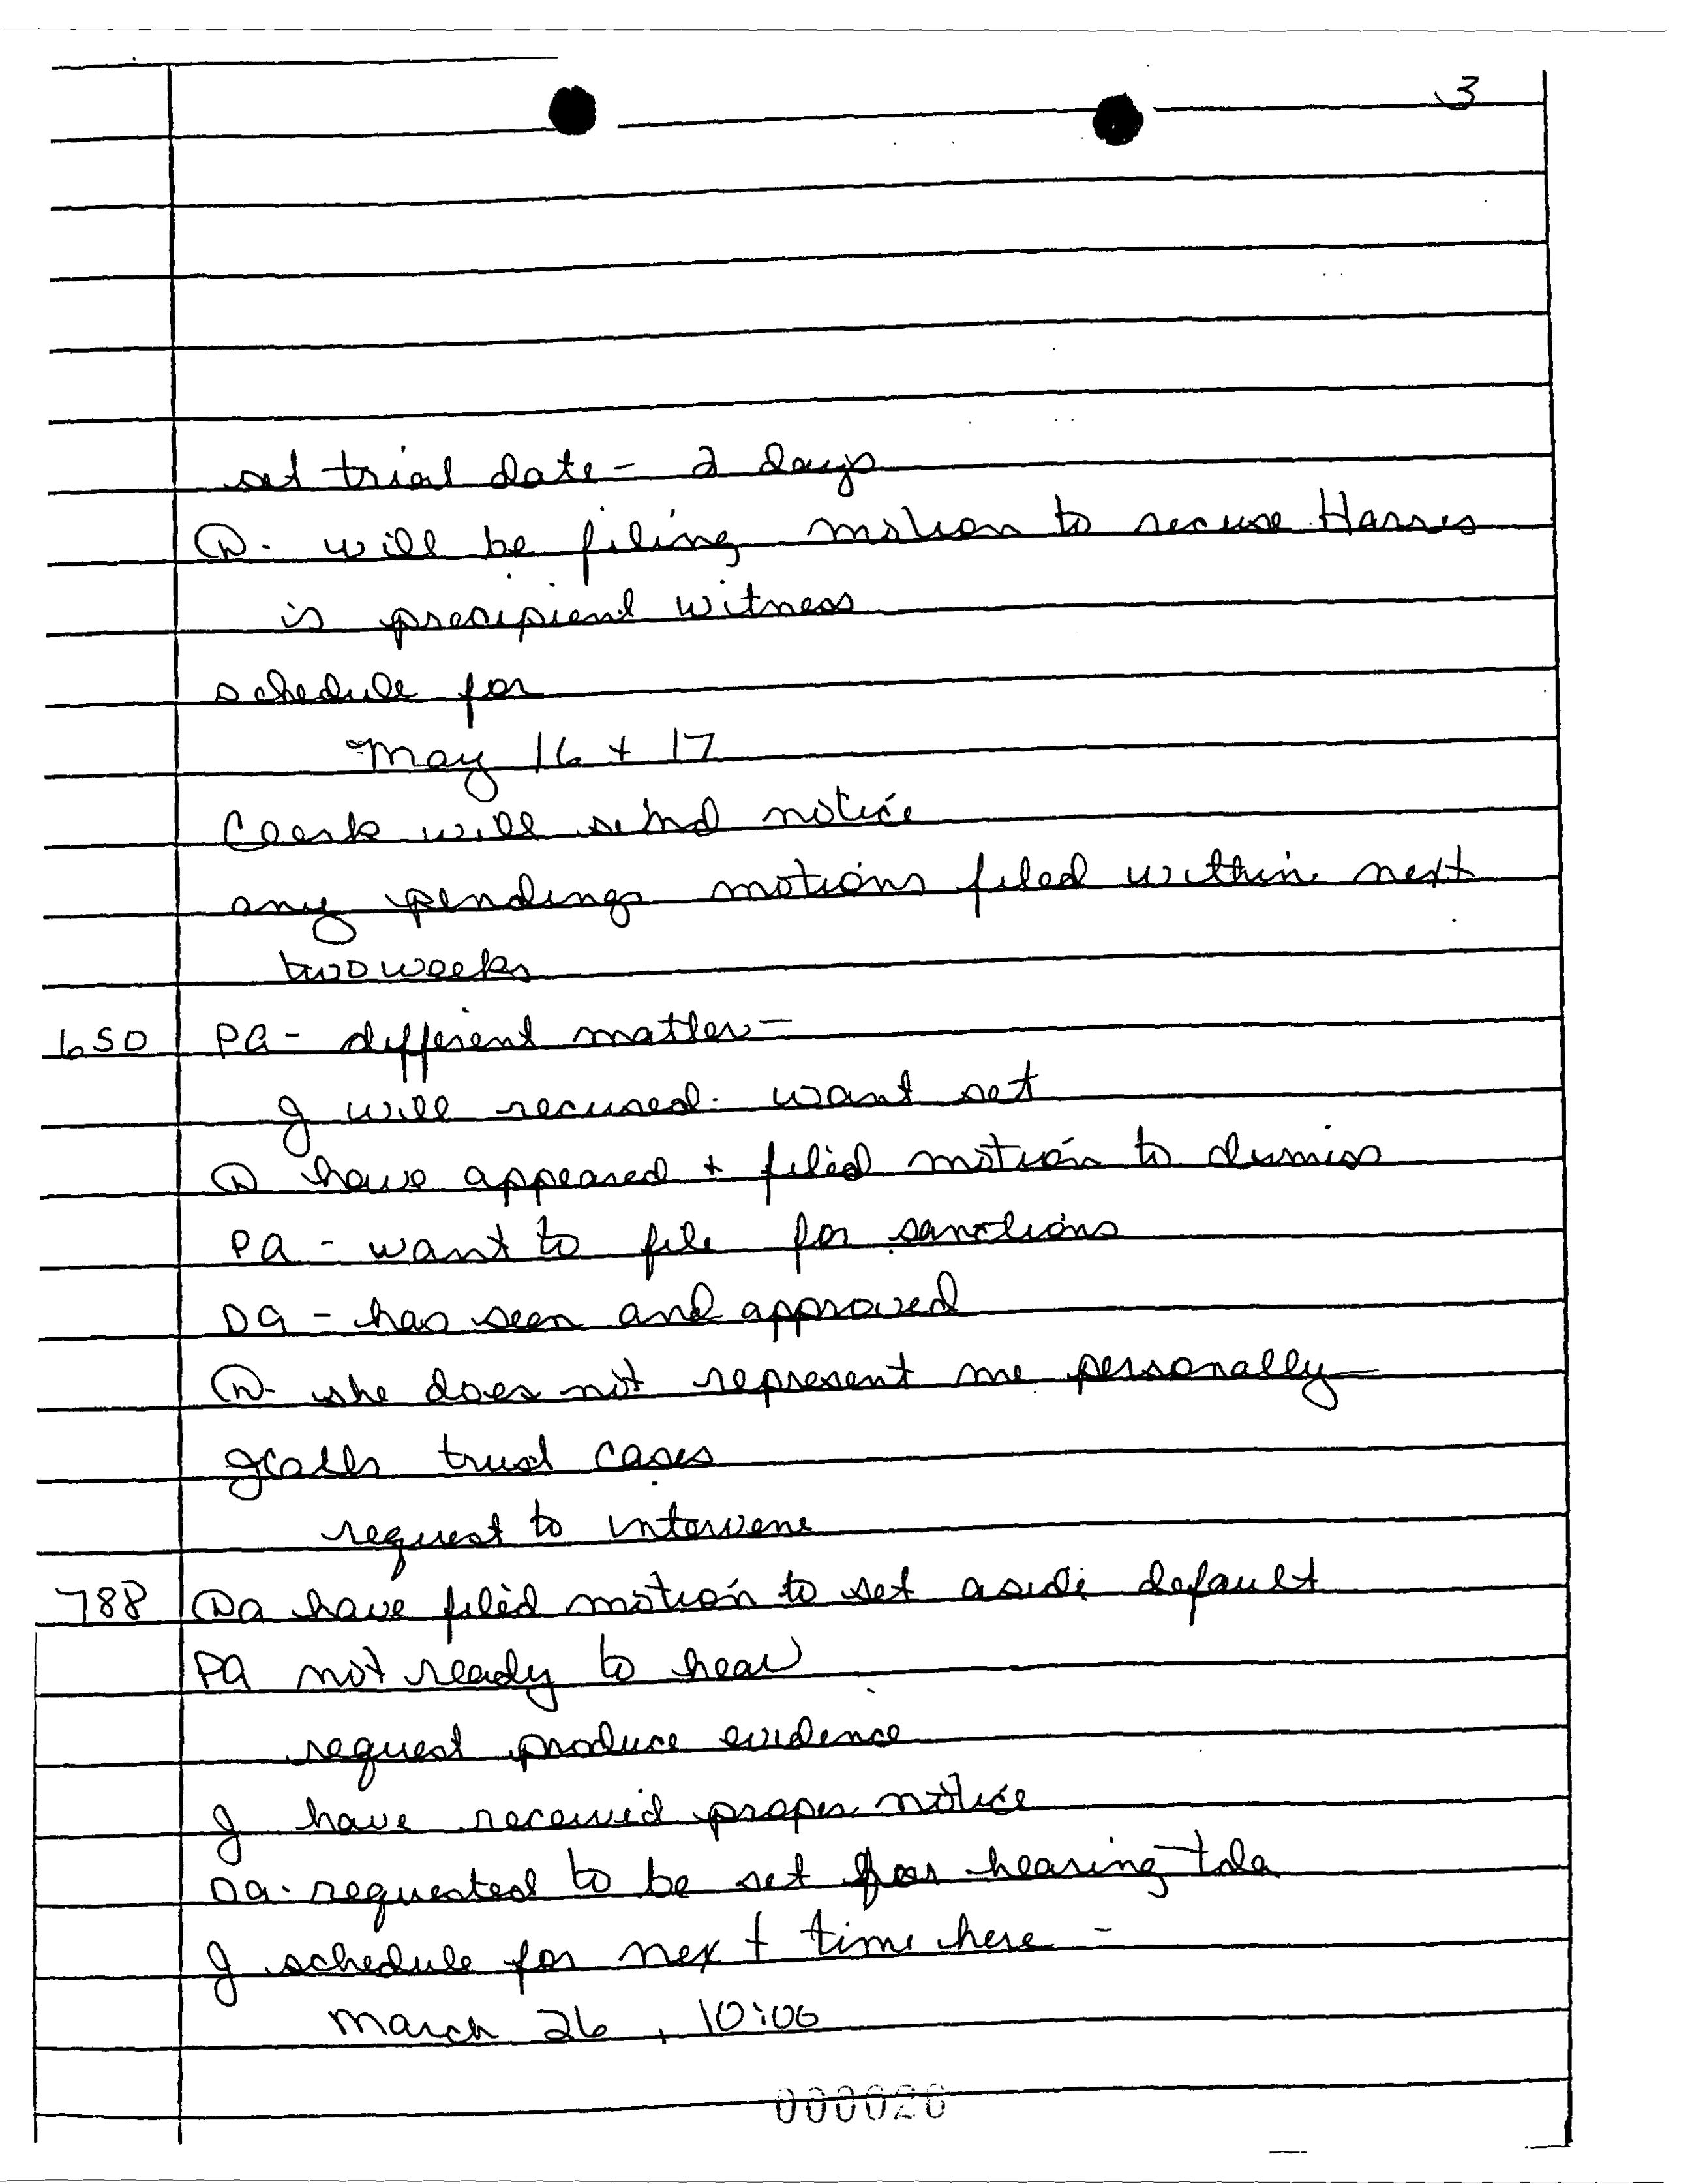 3
set trial date - 2 days
D. will be filing motion to recuse Harris
is precipient witness
schedule for
May 16 + 17
Clerk will send notice
any pendings motions filed within next
two weeks
650 PA - different matter -
J will recused. want set
D have appeared + filed motion to dismiss
PA - want to file for sanctions
DA - has seen and approved
D - she does not represent me personally
J calls trust cases
request to intervene
788 Da have filed motion to set aside default
PA not ready to hear
request produce evidence
J have received proper notice
DA. requested to be set for hearing
J schedule for next time here -
March 26, 10:00
000026